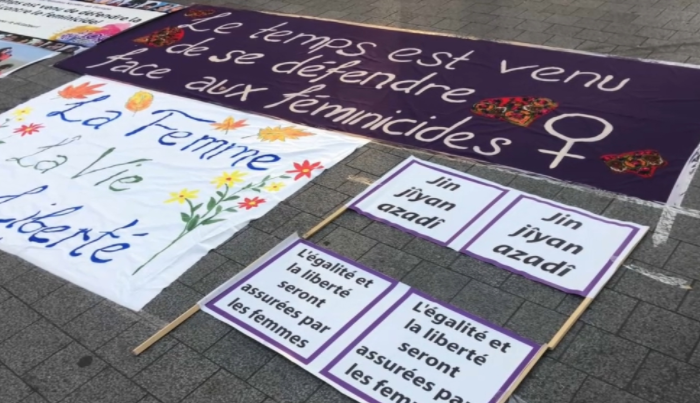 Le temps est venu
de se défendre
face aux féminicides
La Femme
La Vie
Liberté
Jin
jîyan
azadî
Jin
jîyan
azadî
L'égalité et
la liberté
seront
assurées par
les femmes
L'égalité et
la liberté
seront
assurées par
les femmes